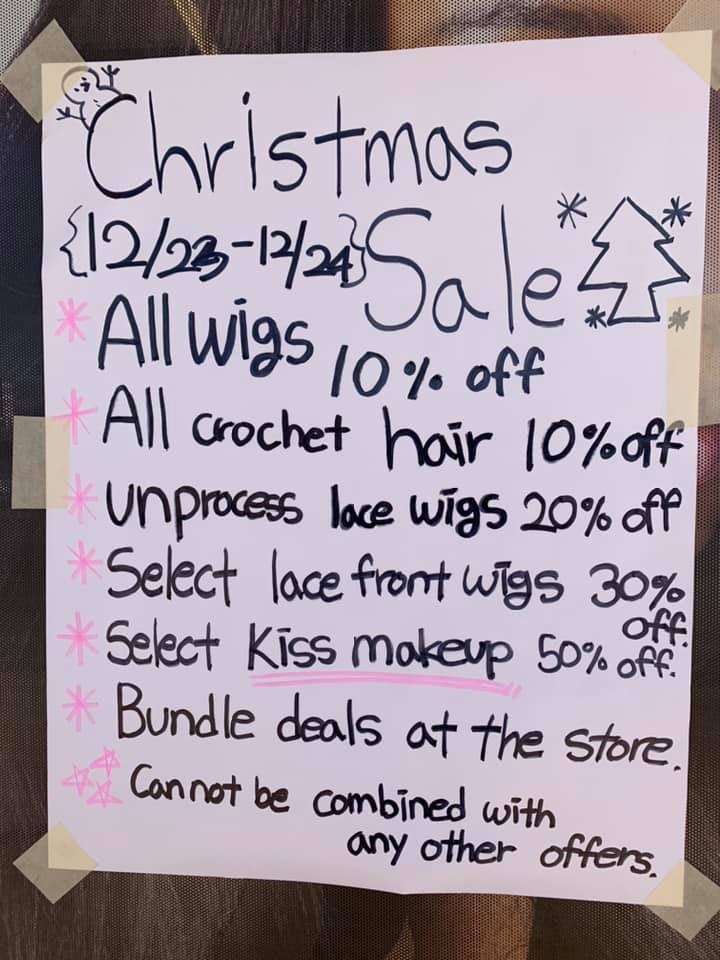 Christmas
{12/23-12/24} Sale
* All wigs 10% off
* All crochet hair 10% off
* unprocess lace wigs 20% off
* Select lace front wigs 30%
off.
* Select Kiss makeup 50% off.
* Bundle deals at the store.
Cannot be combined with
any other offers.